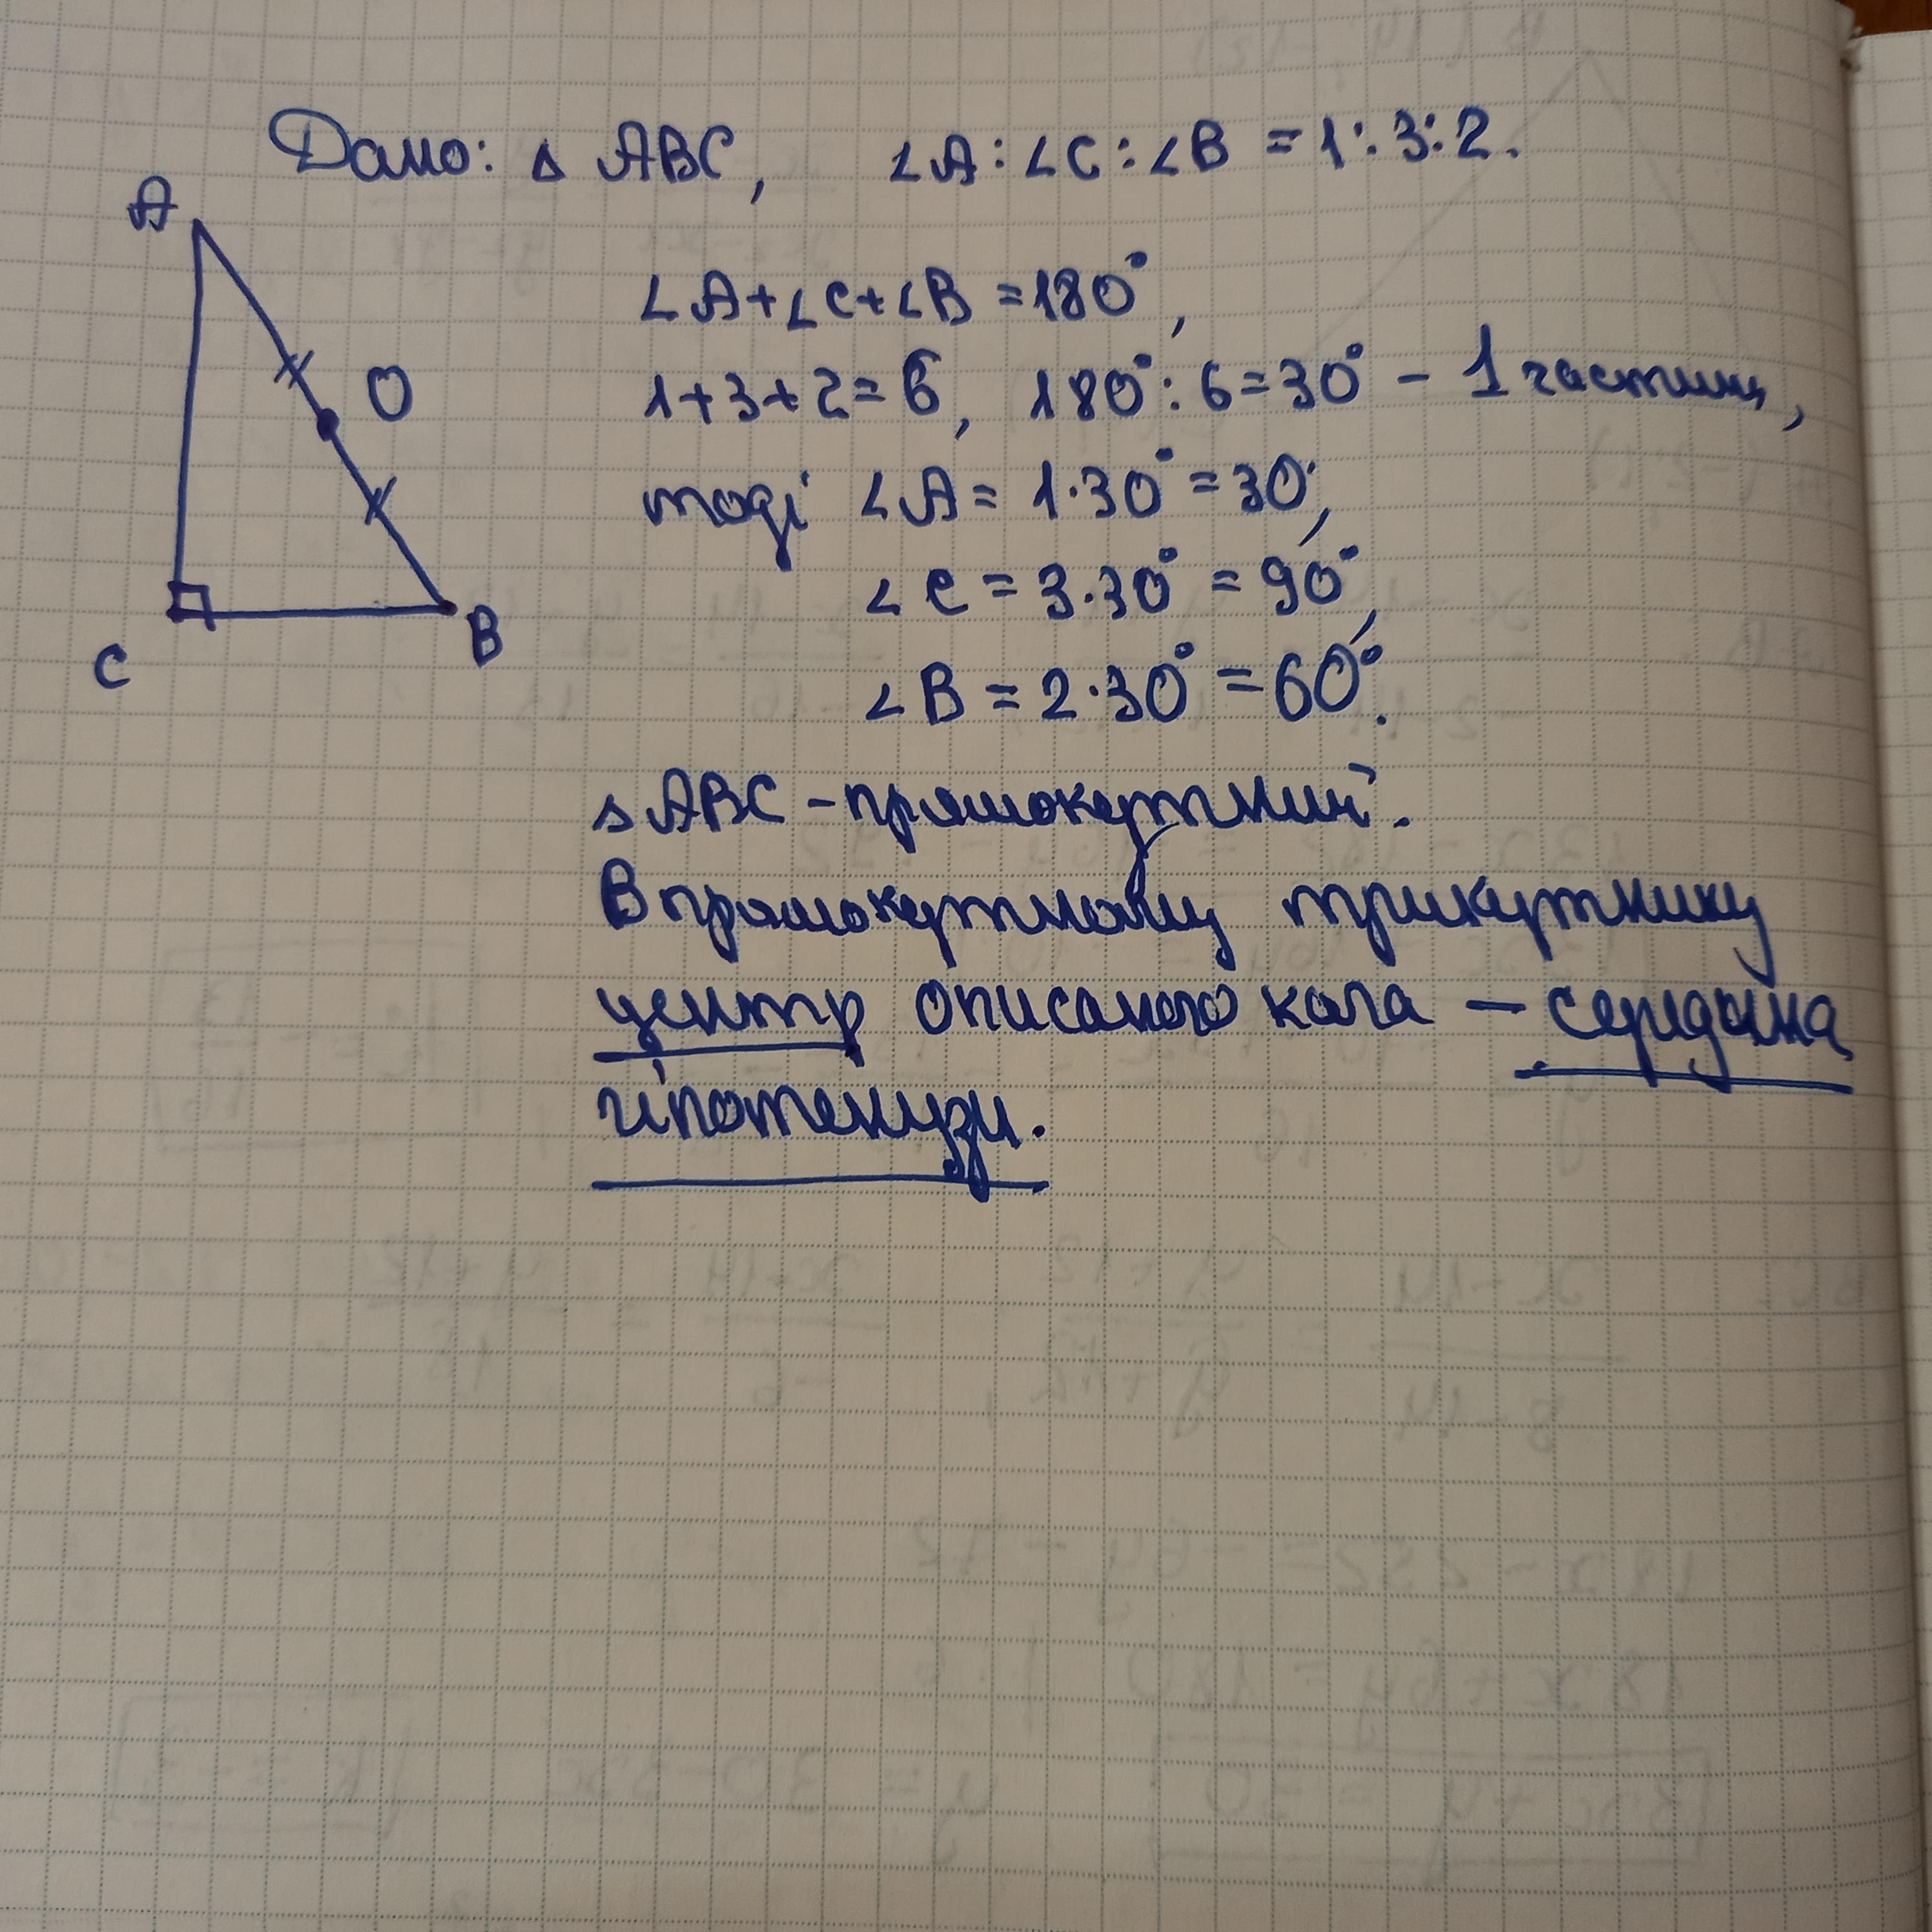 Дано: △ ABC, ∠A : ∠C : ∠B = 1 : 3 : 2.
A
∠A + ∠C + ∠B = 180°,
O
1 + 3 + 2 = 6, 180° : 6 = 30° - 1 частина,
тоді ∠A = 1 · 30° = 30°,
∠C = 3 · 30° = 90°,
C B
∠B = 2 · 30° = 60°.
△ ABC - прямокутний.
В прямокутному трикутнику
центр описаного кола - середина
гіпотенузи.